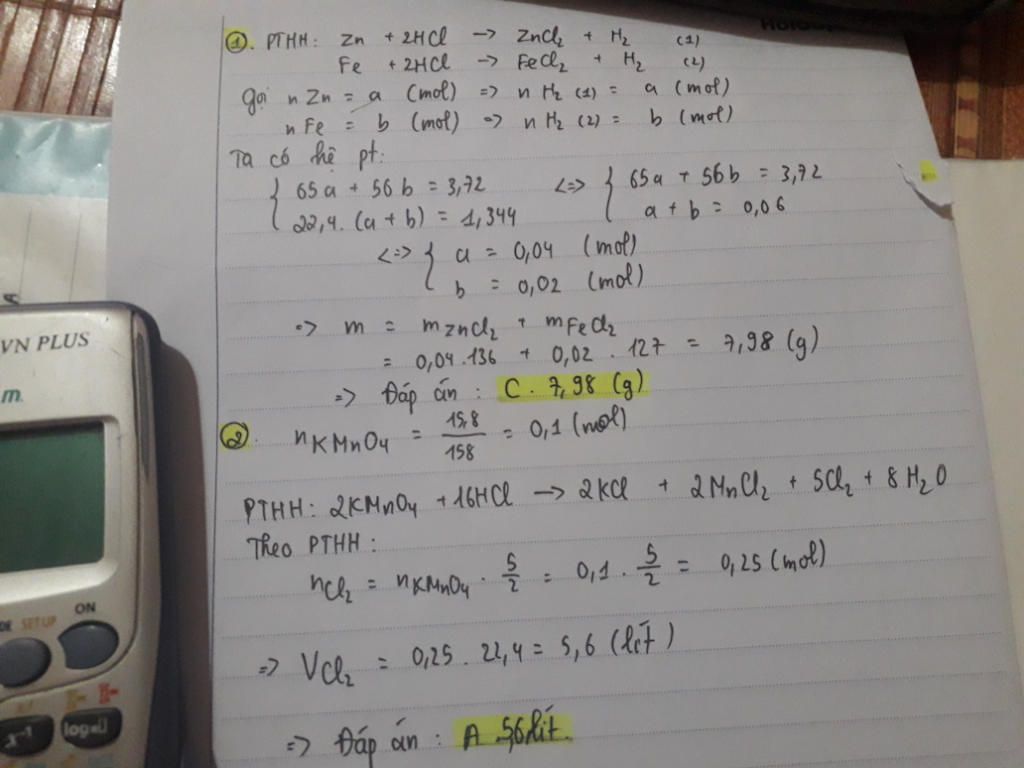 ①. PTHH: Zn + 2HCl → ZnCl₂ + H₂ (1)
Fe + 2HCl → FeCl₂ + H₂ (2)
Gọi nZn = a (mol) => nH₂ (1) = a (mol)
nFe = b (mol) => nH₂ (2) = b (mol)
Ta có hệ pt:
{ 65a + 56b = 3,72 <=> { 65a + 56b = 3,72
22,4. (a + b) = 1,344 a + b = 0,06
<=> { a = 0,04 (mol)
b = 0,02 (mol)
=> m = mZnCl₂ + mFeCl₂
= 0,04.136 + 0,02.127 = 7,98 (g)
=> Đáp án : C. 7,98 (g)
②. nKMnO₄ = 15,8/158 = 0,1 (mol)
PTHH: 2KMnO₄ + 16HCl → 2KCl + 2MnCl₂ + 5Cl₂ + 8H₂O
Theo PTHH:
nCl₂ = nKMnO₄ . 5/2 = 0,1 . 5/2 = 0,25 (mol)
=> VCl₂ = 0,25 . 22,4 = 5,6 (lít)
=> Đáp án : A 5,6 lít.
VN PLUS
ON
SETUP
x⁻¹
log